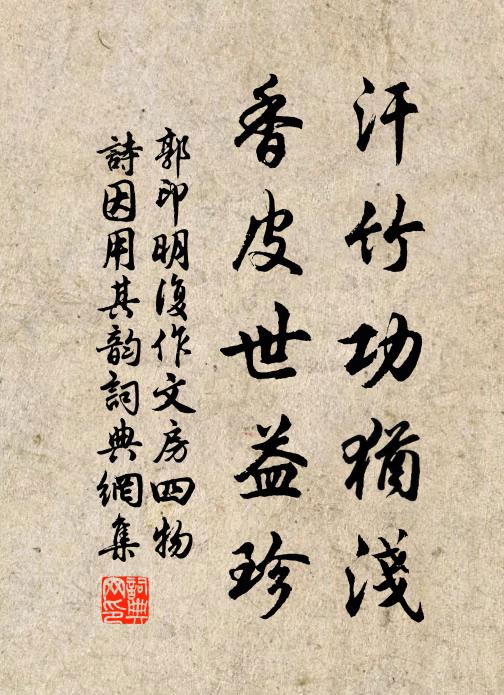 汗竹功猶淺
香皮世益珍
郭印明復作文房四物
詩因用其韵詞典網集
詞典网印